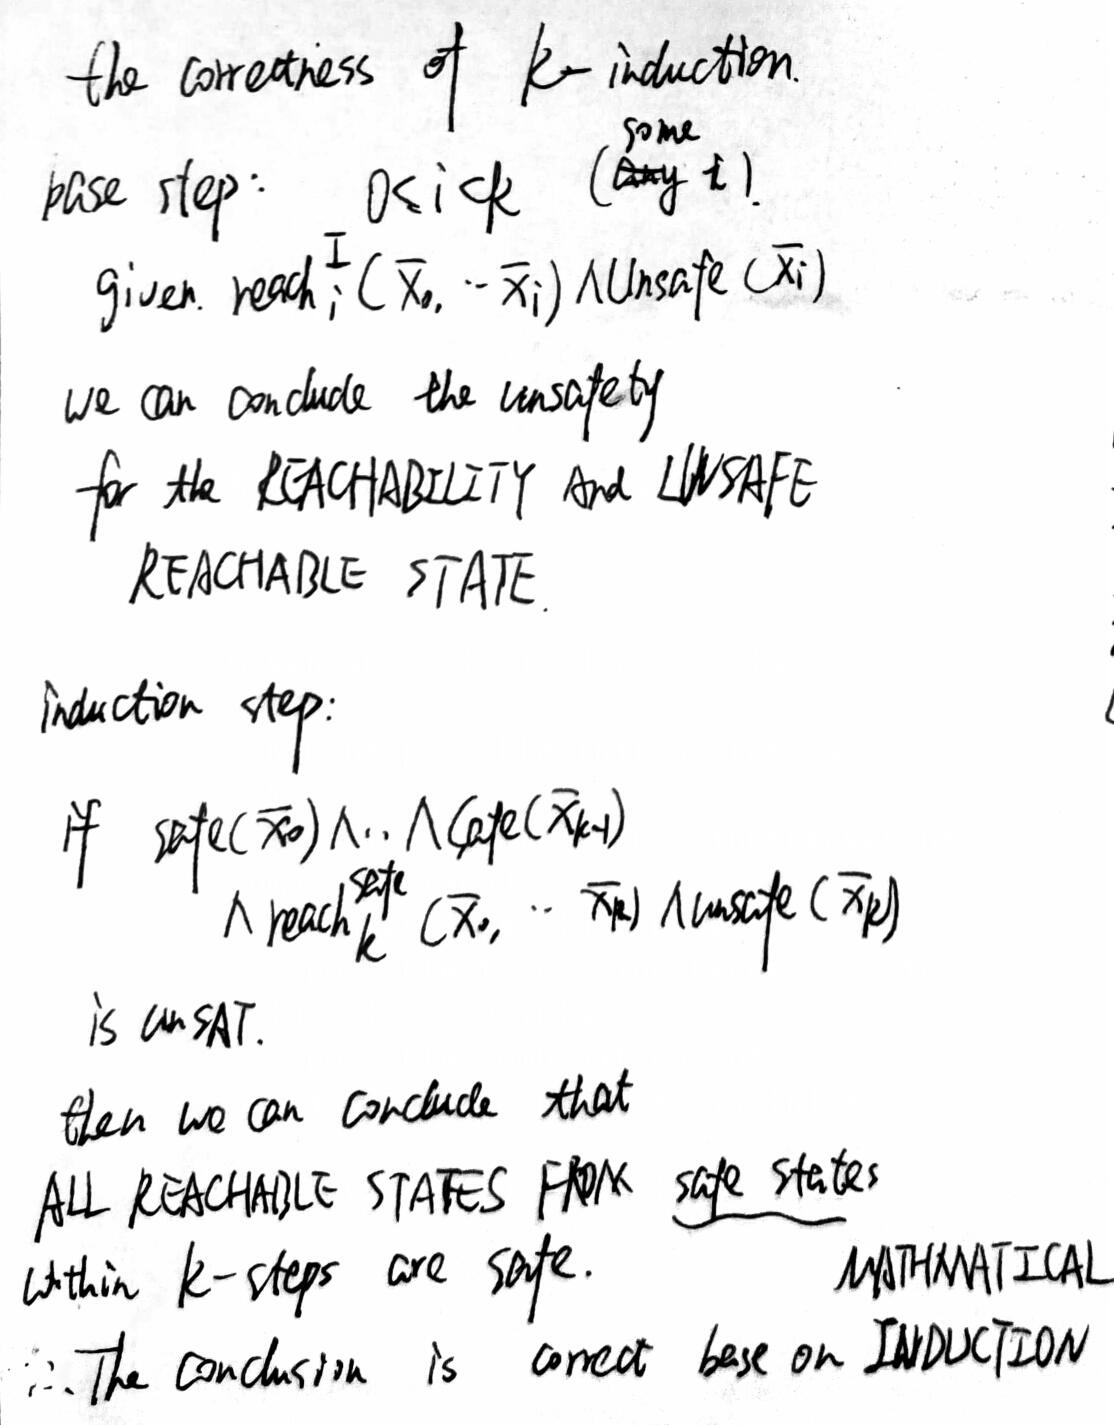 the correctness of k-induction.
some
base step: 0≤i<k (any i).
given. reach_i^I (x̄₀, ·· x̄ᵢ) ∧ Unsafe (x̄ᵢ)
we can conclude the unsafety
for the REACHABILITY And UNSAFE
REACHABLE STATE.
induction step:
if safe(x̄₀) ∧.. ∧ Safe(x̄ₖ₋₁)
∧ reach_k^safe (x̄₀, ·· x̄ₖ) ∧ unsafe (x̄ₖ)
is unSAT.
then we can conclude that
ALL REACHABLE STATES FROM safe states
within k-steps are safe.
MATHMATICAL
∴ The conclusion is correct base on INDUCTION